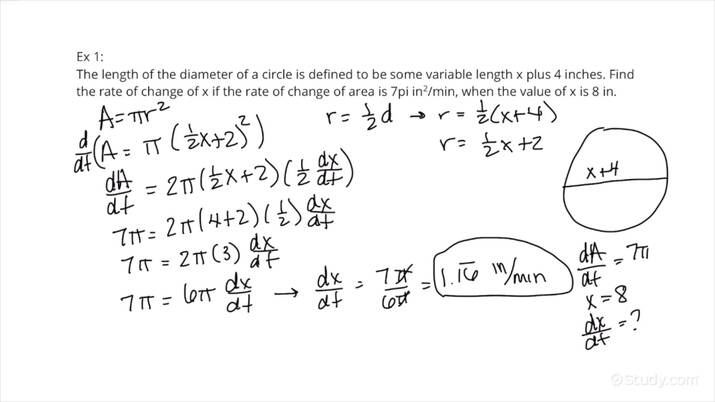 Ex 1:
The length of the diameter of a circle is defined to be some variable length x plus 4 inches. Find
the rate of change of x if the rate of change of area is 7pi in²/min, when the value of x is 8 in.
A = πr²
d/dt (A = π (½x+2)²)
dA/dt = 2π(½x+2)(½ dx/dt)
7π = 2π(4+2)(½) dx/dt
7π = 2π(3) dx/dt
7π = 6π dx/dt → dx/dt = 7π/6π = 1.16̅ in/min
r = ½d → r = ½(x+4)
r = ½x+2
x+4
dA/dt = 7π
x = 8
dx/dt = ?
©Study.com